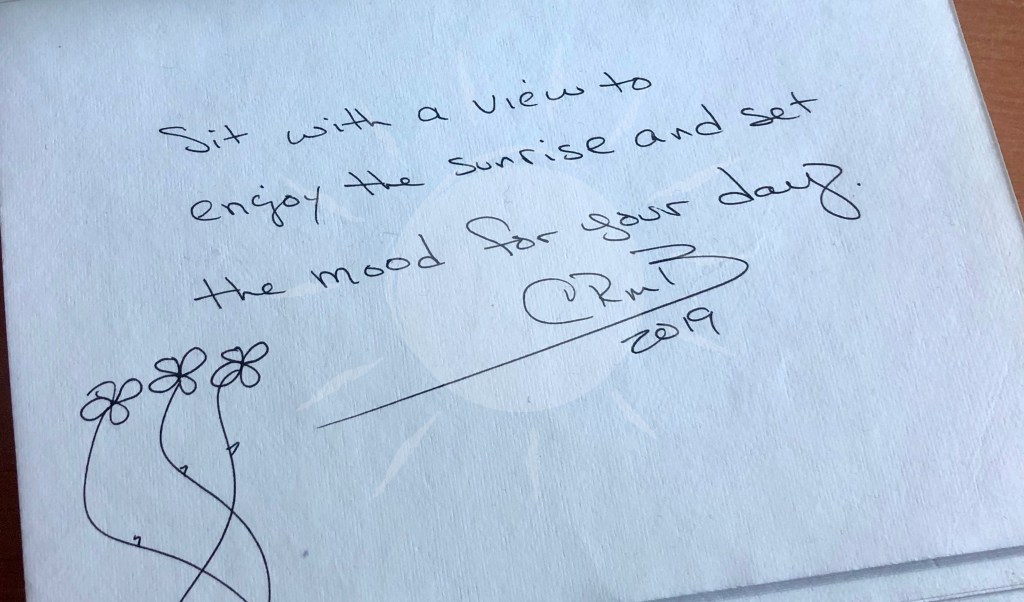 Sit with a view to
enjoy the sunrise and set
the mood for your day.
CRMB
2019